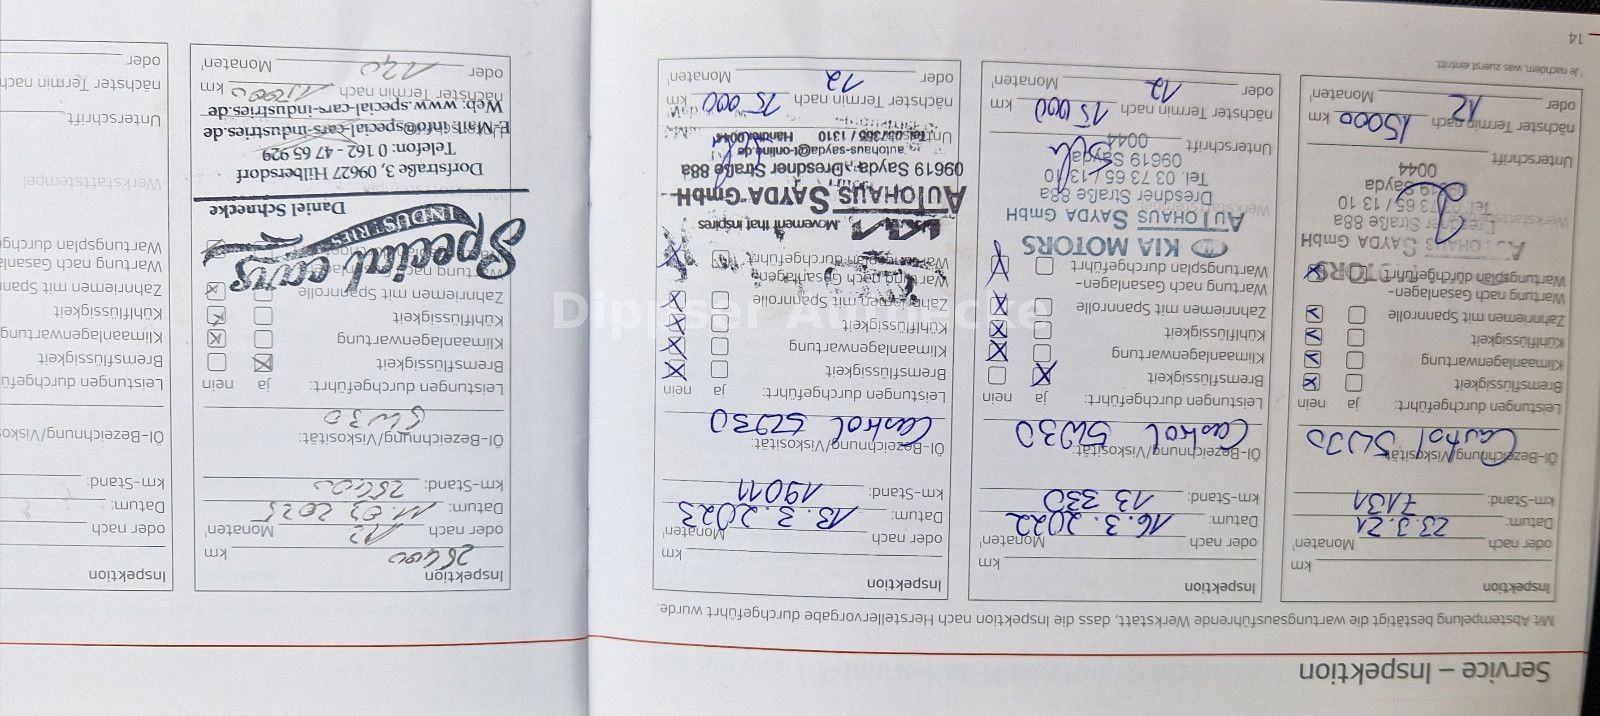 Service – Inspektion
Mit Abstempelung bestätigt die wartungsausführende Werkstatt, dass die Inspektion nach Herstellervorgabe durchgeführt wurde.
Inspektion
km
oder nach Monaten¹
Datum: 23.3.21
km-Stand: 7131
Öl-Bezeichnung/Viskosität:
Castrol 5W30
Leistungen durchgeführt: ja nein
Bremsflüssigkeit
Klimaanlagenwartung
Kühlflüssigkeit
Zahnriemen mit Spannrolle
Wartung nach Gasanlagen-
Wartungsplan durchgeführt
MOTORS
AUTOHAUS SAYDA GmbH
Dresdner Straße 88a
Tel. 73 65 / 13 10
Sayda
0044
Unterschrift
nächster Termin nach 15000 km
oder 12 Monaten¹
¹ Je nachdem, was zuerst eintritt.
14
Inspektion
km
oder nach Monaten¹
Datum: 16.3.2022
km-Stand: 13 330
Öl-Bezeichnung/Viskosität:
Castrol 5W30
Leistungen durchgeführt: ja nein
Bremsflüssigkeit
Klimaanlagenwartung
Kühlflüssigkeit
Zahnriemen mit Spannrolle
Wartung nach Gasanlagen-
Wartungsplan durchgeführt
KIA MOTORS
AUTOHAUS SAYDA GmbH
Dresdner Straße 88a
Tel. 03 73 65 - 13 10
09619 Sayda
0044
Unterschrift
nächster Termin nach 15 000 km
oder 12 Monaten¹
Inspektion
km
oder nach Monaten¹
Datum: 13.3.2023
km-Stand: 19011
Öl-Bezeichnung/Viskosität:
Castrol 5W30
Leistungen durchgeführt: ja nein
Bremsflüssigkeit
Klimaanlagenwartung
Kühlflüssigkeit
Zahnriemen mit Spannrolle
Wartung nach Gasanlagen-
Wartungsplan durchgeführt
KIA Movement that inspires
AUTOHAUS SAYDA GmbH
09619 Sayda · Dresdner Straße 88a
autohaus-sayda@t-online.de
Tel. 037365 / 1310 Händler 0044
nächster Termin nach 15 000 km
oder 12 Monaten¹
Inspektion
26400 km
oder nach 12 Monaten¹
Datum: 11.03.2025
km-Stand: 26400
Öl-Bezeichnung/Viskosität:
5W30
Leistungen durchgeführt: ja nein
Bremsflüssigkeit
Klimaanlagenwartung
Kühlflüssigkeit
Zahnriemen mit Spannrolle
Special cars
INDUSTRIES
Daniel Schnecke
Dorfstraße 3, 09627 Hilbersdorf
Telefon: 0 162 - 47 65 929
E-Mail: info@special-cars-industries.de
Web: www.special-cars-industries.de
nächster Termin nach km
oder Monaten¹
Inspektion
oder nach
Datum:
km-Stand:
Öl-Bezeichnung/Visko
Leistungen durchgefü
Bremsflüssigkeit
Klimaanlagenwartung
Kühlflüssigkeit
Zahnriemen mit Span
Wartung nach Gasanla
Wartungsplan durchge
Werkstattstempel
Unterschrift
nächster Termin nach
oder
Dippser Autoecke